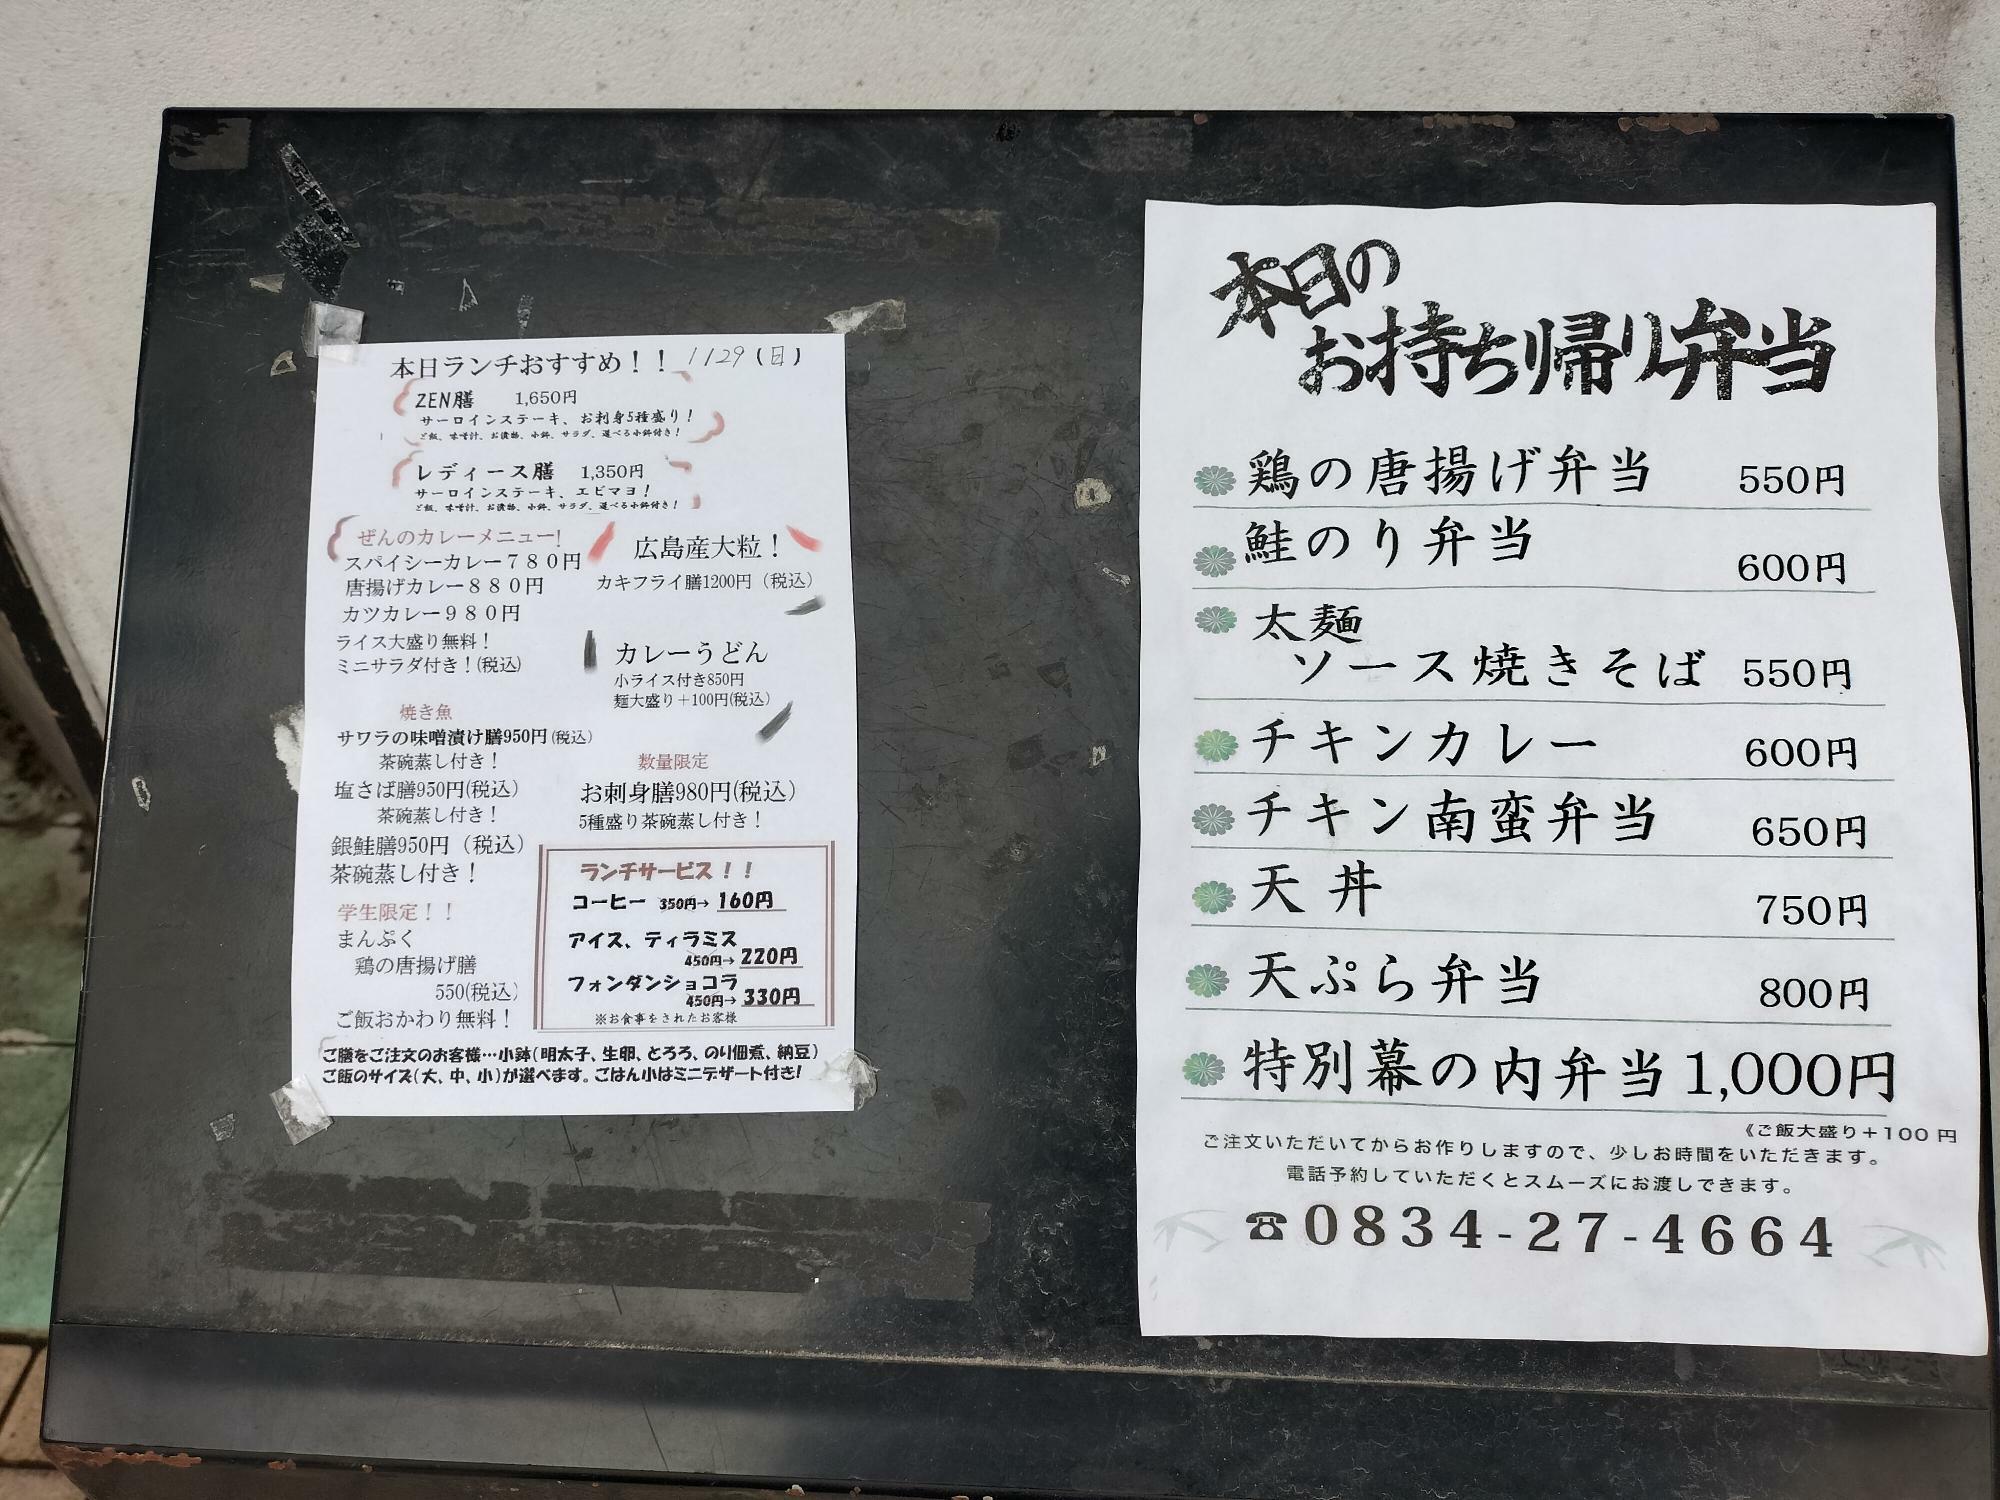 本日ランチおすすめ！！ 1129(日)
ZEN膳 1,650円
サーロインステーキ、お刺身5種盛り！
ご飯、味噌汁、お漬物、小鉢、サラダ、選べる小鉢付き！
レディース膳 1,350円
サーロインステーキ、エビマヨ！
ご飯、味噌汁、お漬物、小鉢、サラダ、選べる小鉢付き！
ぜんのカレーメニュー!
スパイシーカレー７８０円
唐揚げカレー８８０円
カツカレー９８０円
ライス大盛り無料！
ミニサラダ付き！(税込)
焼き魚
サワラの味噌漬け膳950円(税込)
茶碗蒸し付き！
塩さば膳950円(税込)
茶碗蒸し付き！
銀鮭膳950円（税込）
茶碗蒸し付き！
学生限定！！
まんぷく
鶏の唐揚げ膳
550(税込)
ご飯おかわり無料！
広島産大粒！
カキフライ膳1200円（税込）
カレーうどん
小ライス付き850円
麺大盛り＋100円(税込)
数量限定
お刺身膳980円(税込)
5種盛り茶碗蒸し付き！
ランチサービス！！
コーヒー 350円→ 160円
アイス、ティラミス
450円→ 220円
フォンダンショコラ
450円→ 330円
※お食事をされたお客様
ご膳をご注文のお客様…小鉢(明太子、生卵、とろろ、のり佃煮、納豆)
ご飯のサイズ(大、中、小)が選べます。ごはん小はミニデザート付き!
本日の
お持ち帰り弁当
鶏の唐揚げ弁当 550円
鮭のり弁当 600円
太麺
ソース焼きそば 550円
チキンカレー 600円
チキン南蛮弁当 650円
天丼 750円
天ぷら弁当 800円
特別幕の内弁当 1,000円
《ご飯大盛り＋100 円
ご注文いただいてからお作りしますので、少しお時間をいただきます。
電話予約していただくとスムーズにお渡しできます。
☎0834-27-4664